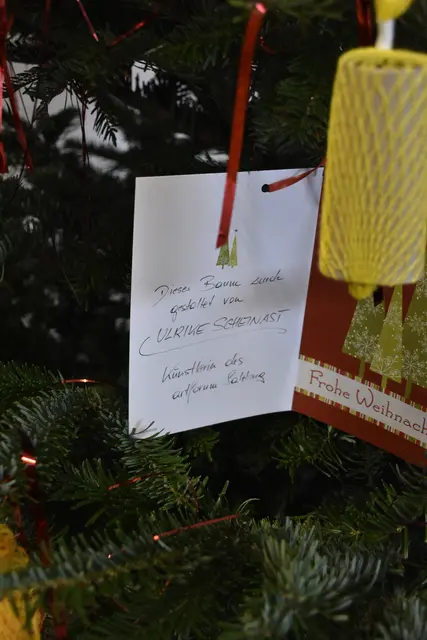 Dieser Baum wurde
gestaltet von
ULRIKE SCHEINAST
Künstlerin des
artforum Salzburg
Frohe Weihnach